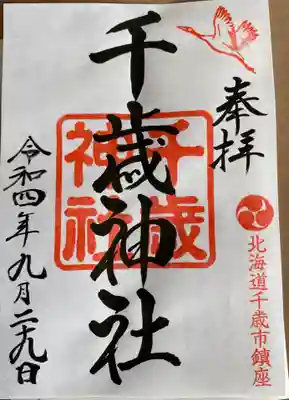 奉拝
北海道千歳市鎮座
千歳神社
千歳
神社
令和四年九月二十九日